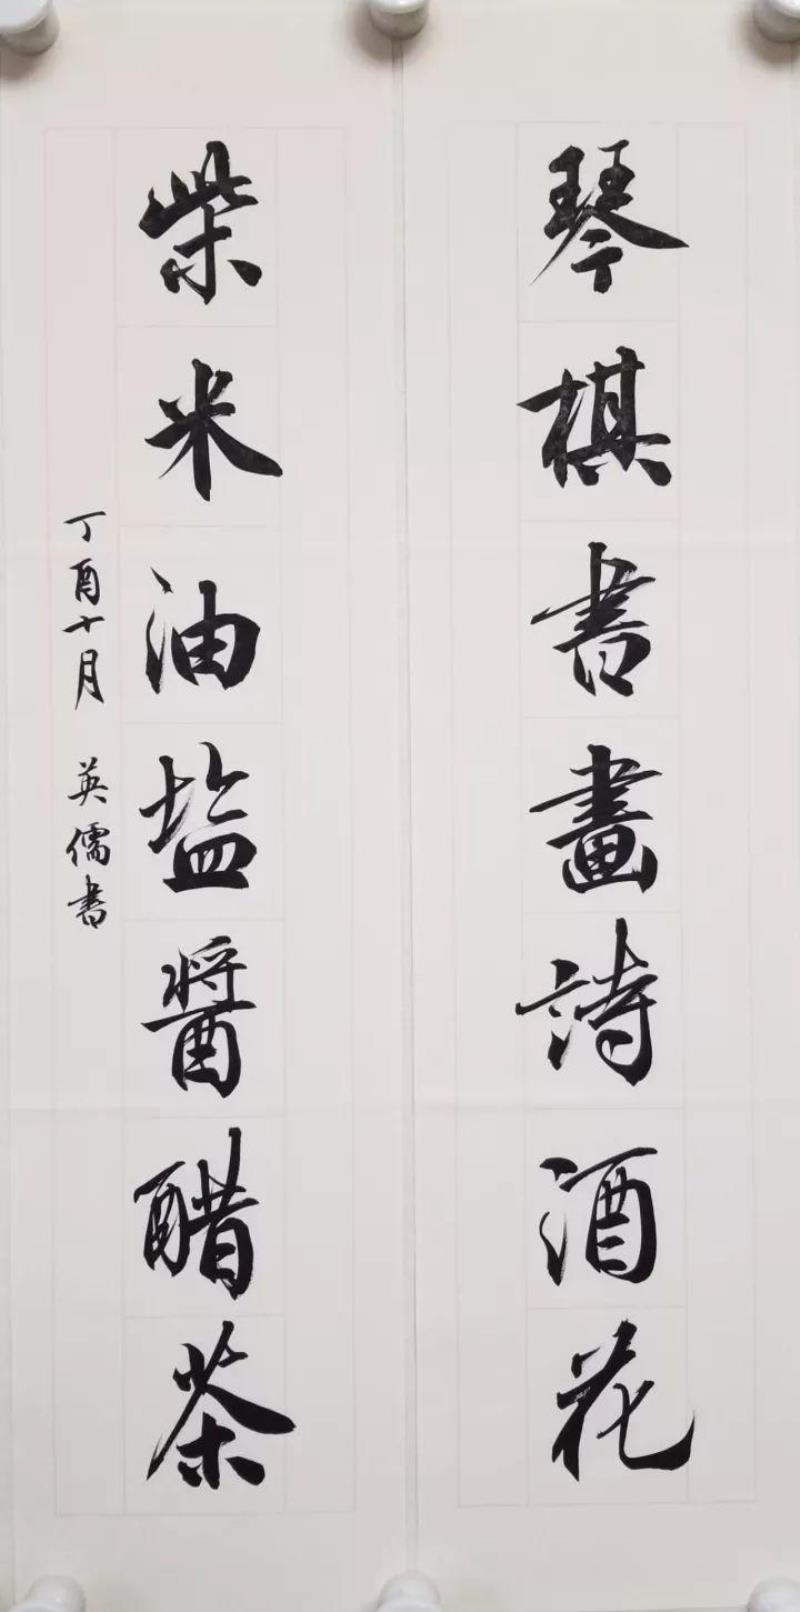 琴棋書畫詩酒花
柴米油盐醬醋茶
丁酉十月 英儒書